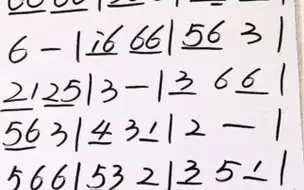 6 - | i6 66 | 56 3 |
2125 | 3 - | 3 6 6 |
56 3 | 4 3 1 | 2 - |
566 | 53 2 | 3 5 1 |